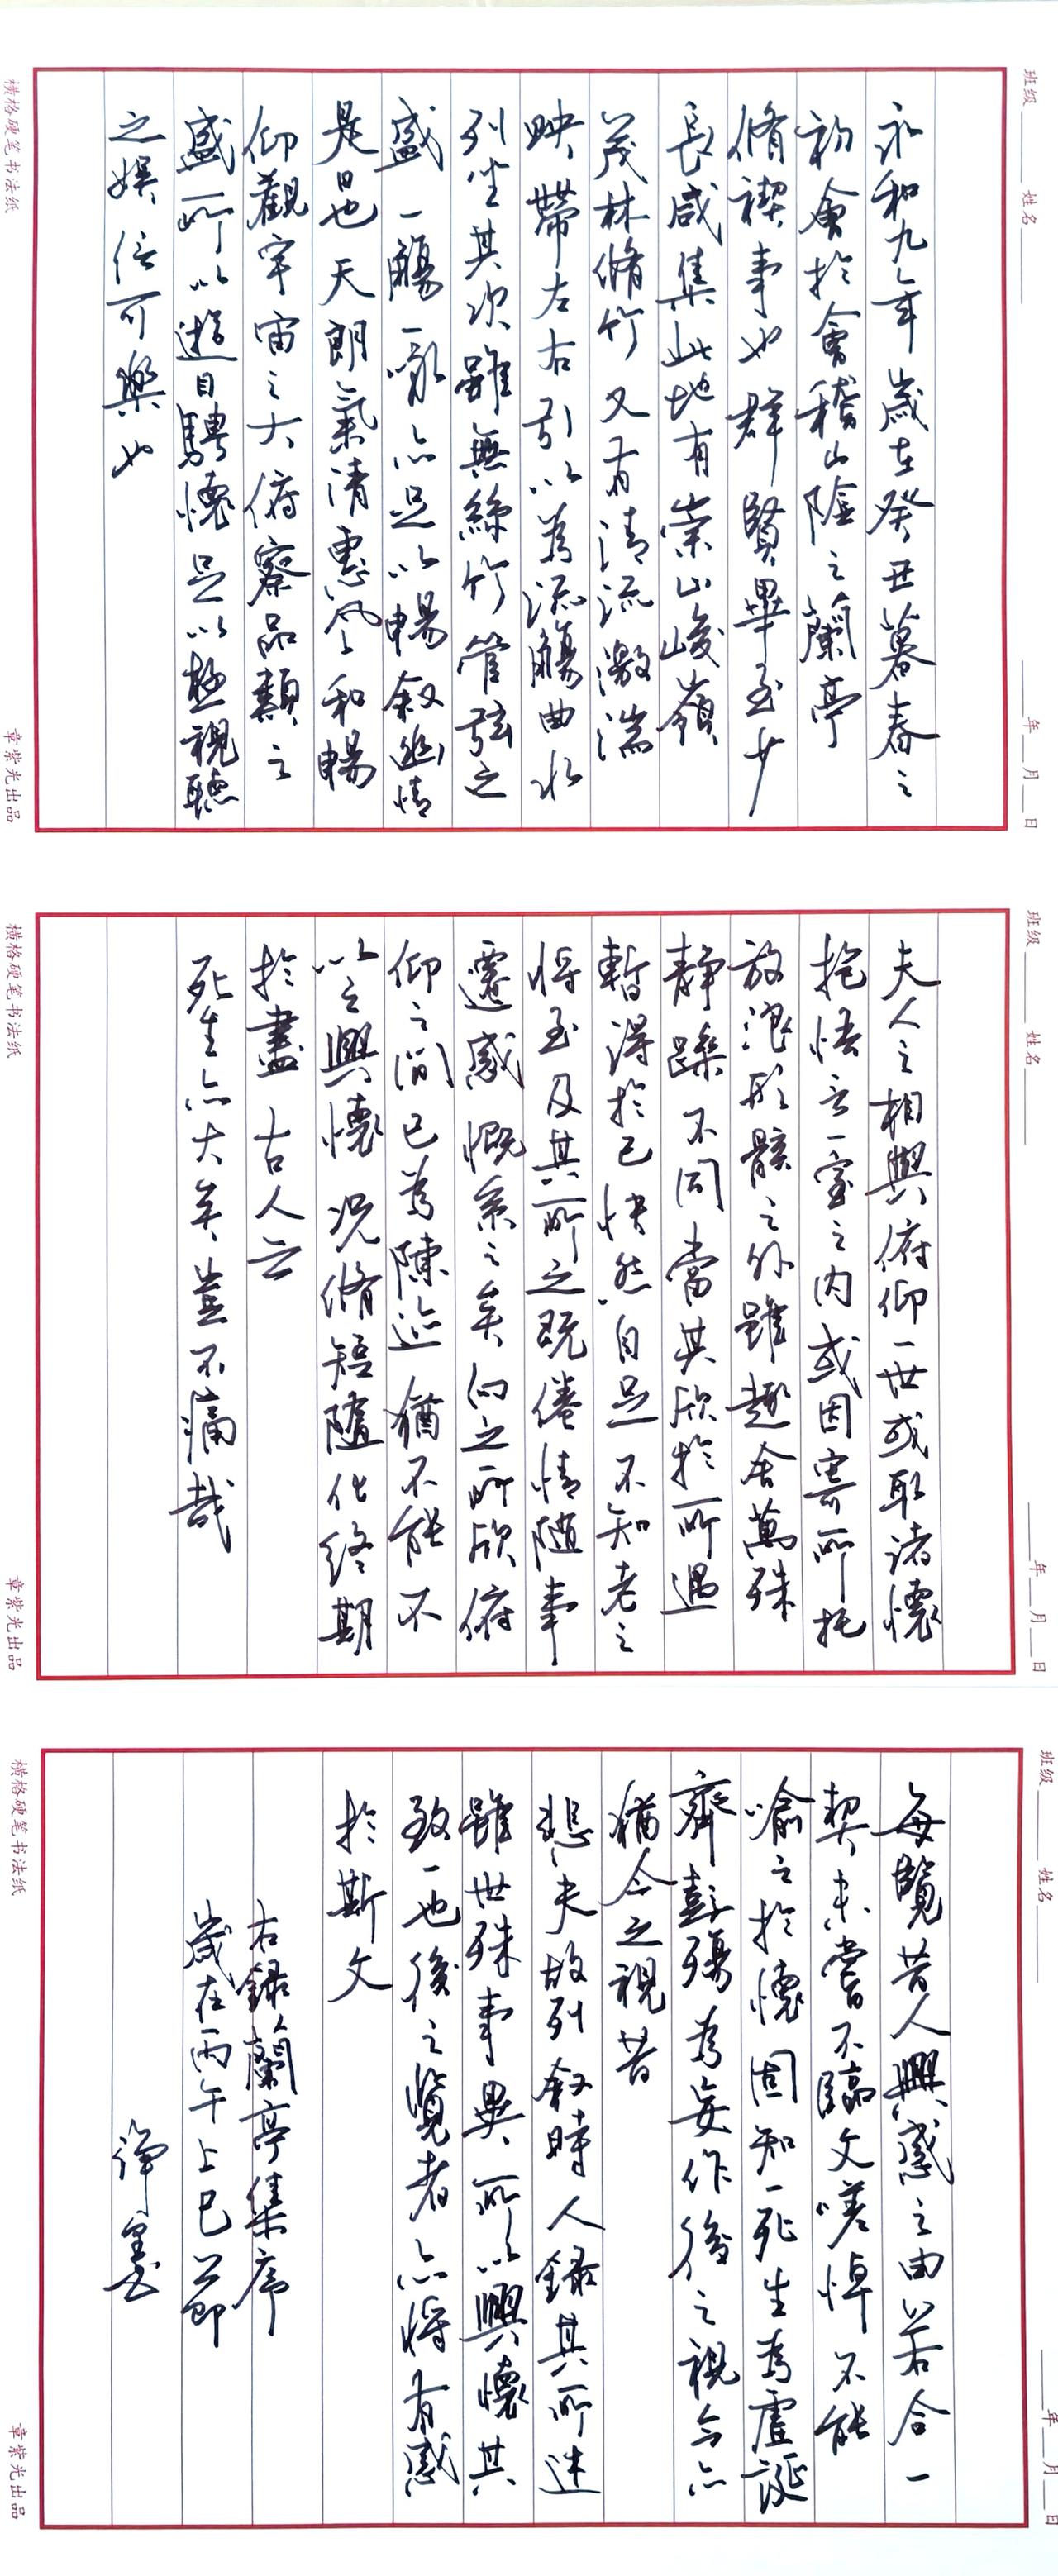 班级 姓名 年 月 日
永和九年歲在癸丑暮春之
初會於會稽山陰之蘭亭
脩禊事也群賢畢至少
長咸集此地有崇山峻嶺
茂林脩竹又有清流激湍
映帶左右引以為流觴曲水
列坐其次雖無絲竹管弦之
盛一觴一詠亦足以暢叙幽情
是日也天朗氣清惠風和暢
仰觀宇宙之大俯察品類之
盛所以遊目騁懷足以極視聽
之娛信可樂也
横格硬笔书法纸 章紫光出品
班级 姓名 年 月 日
夫人之相與俯仰一世或取諸懷
抱悟言一室之內或因寄所托
放浪形骸之外雖趣舍萬殊
靜躁不同當其欣於所遇
暫得於己快然自足不知老之
將至及其所之既倦情隨事
遷感慨系之矣向之所欣俯
仰之間已為陳迹猶不能不
以之興懷況脩短隨化終期
於盡古人云
死生亦大矣豈不痛哉
横格硬笔书法纸 章紫光出品
班级 姓名 年 月 日
每覽昔人興感之由若合一
契未嘗不臨文嗟悼不能
喻之於懷固知一死生為虛誕
齊彭殤為妄作後之視今亦
猶今之視昔
悲夫故列叙時人錄其所述
雖世殊事異所以興懷其
致一也後之覽者亦將有感
於斯文
右錄蘭亭集序
歲在丙午上巳節
横格硬笔书法纸 章紫光出品